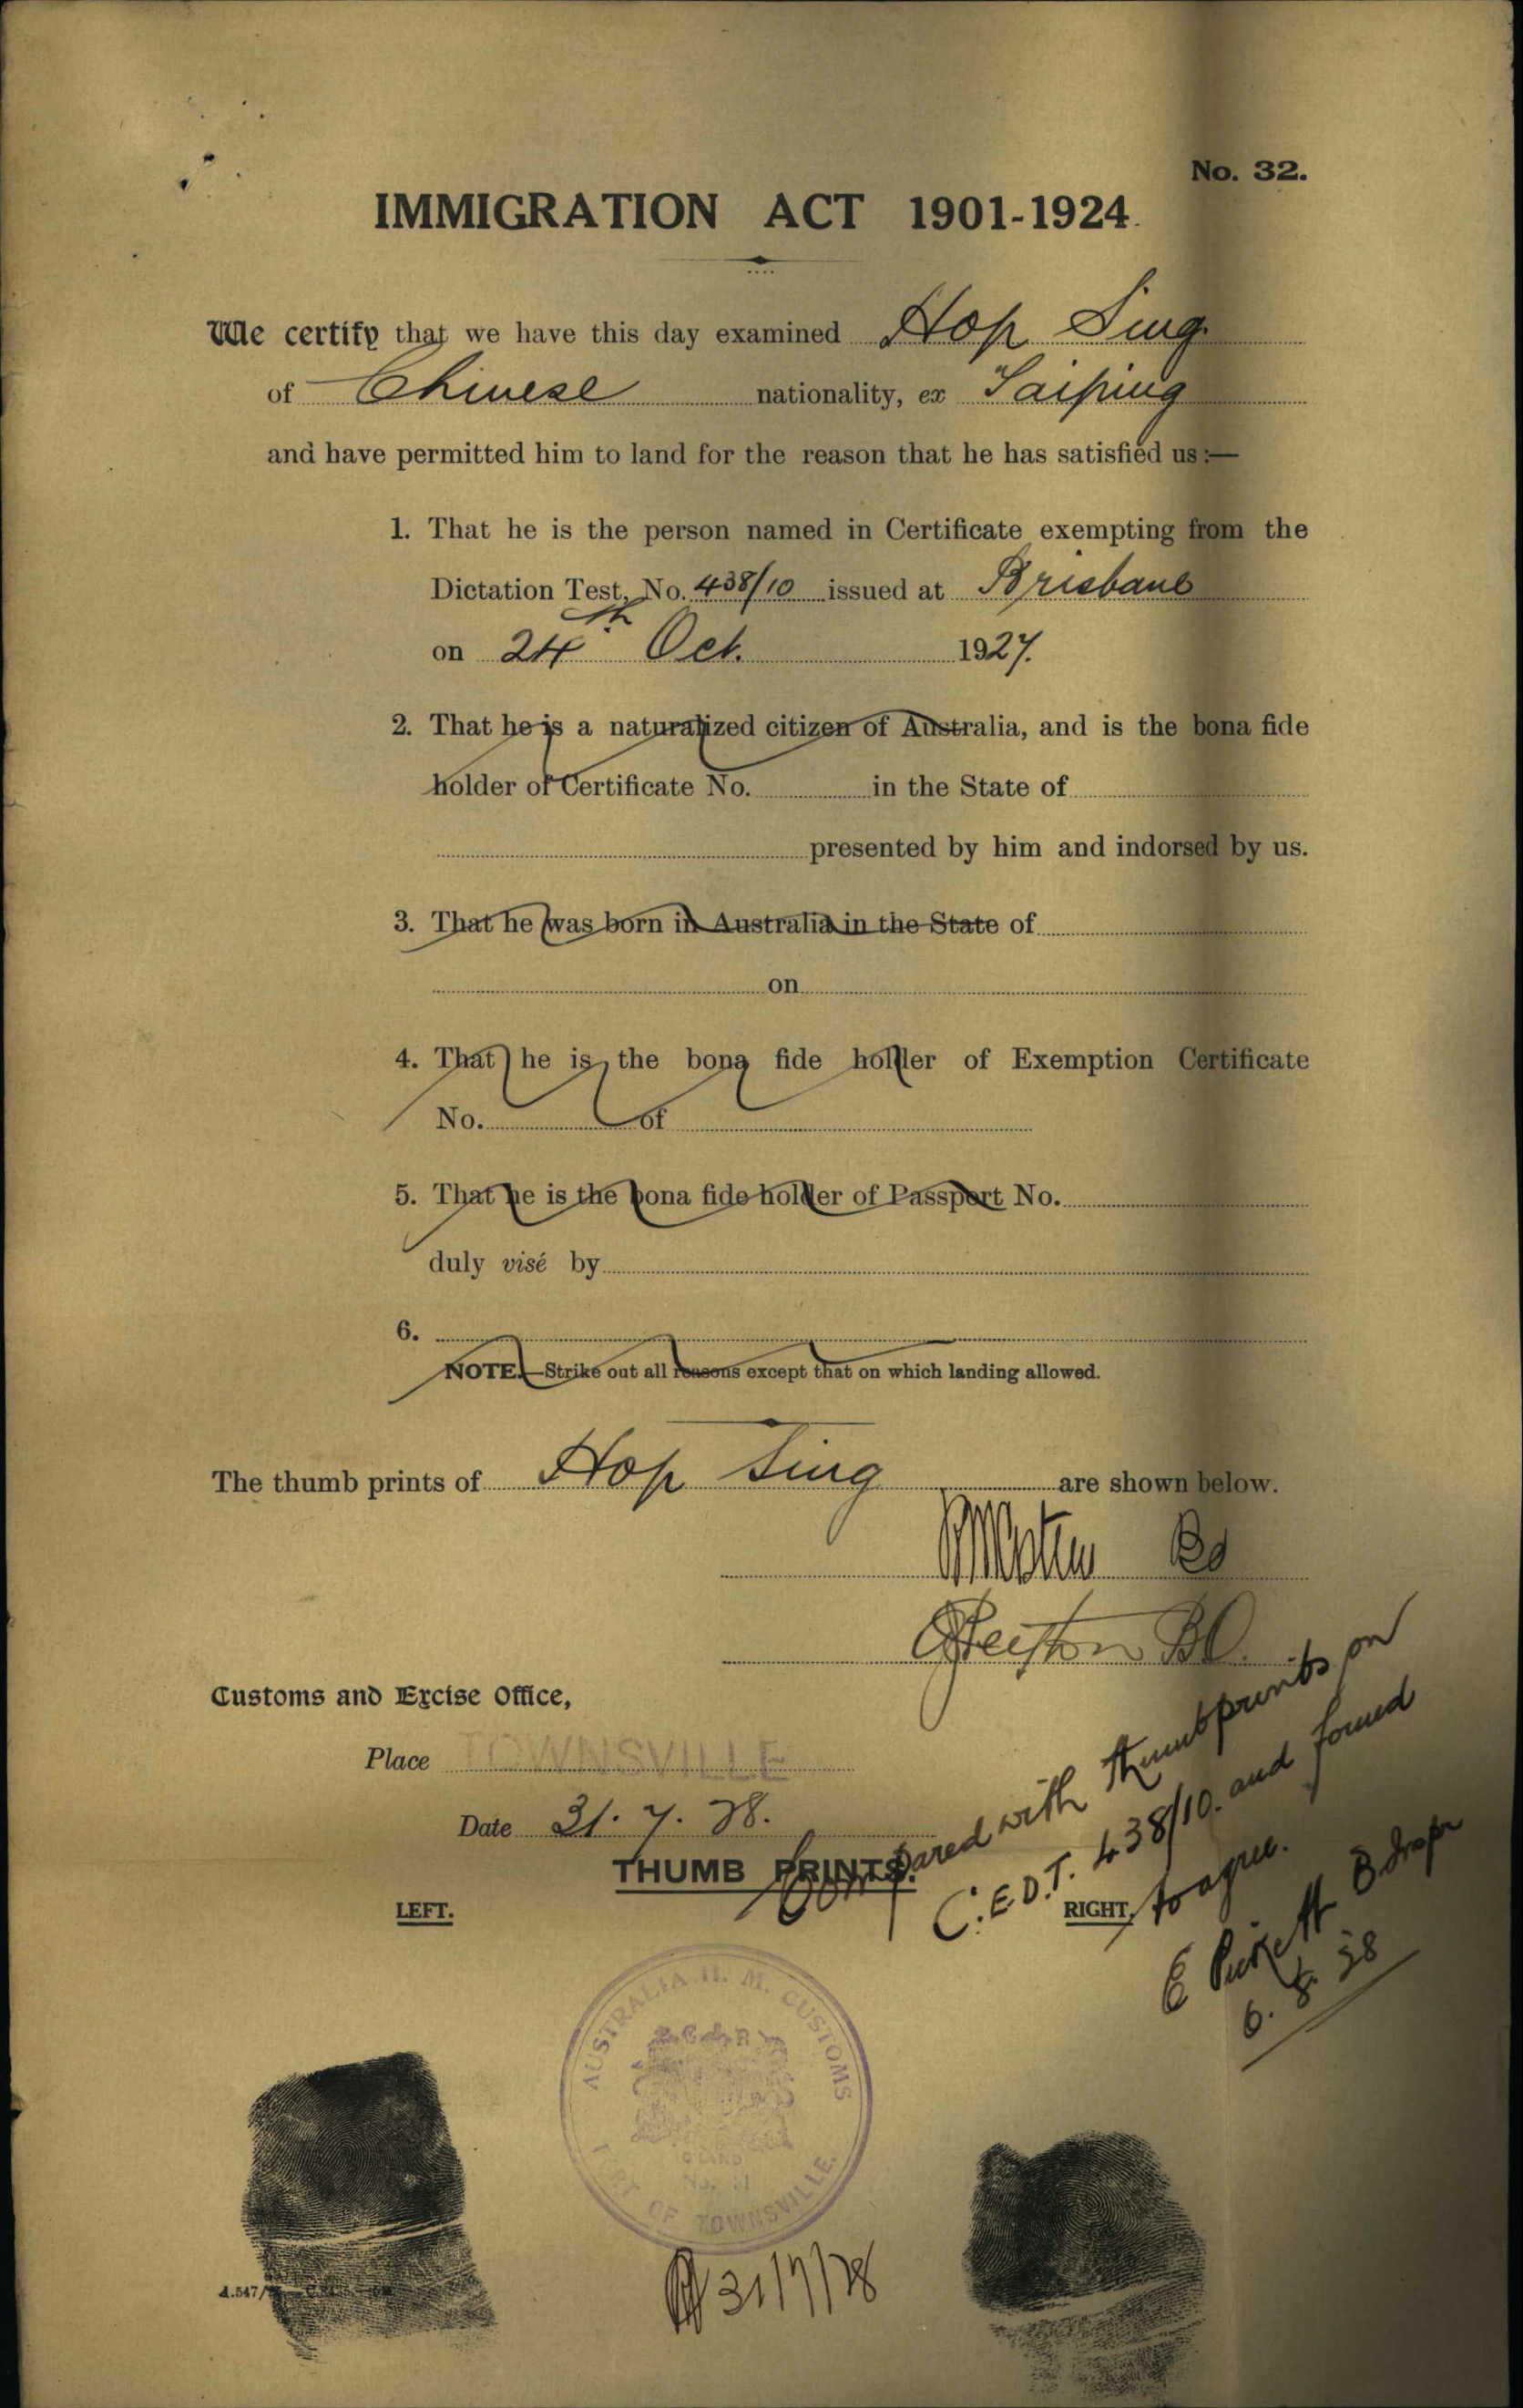 No. 32.
IMMIGRATION ACT 1901-1924.
We certify that we have this day examined Hop Sing
of Chinese nationality, ex Taiping
and have permitted him to land for the reason that he has satisfied us:—
1. That he is the person named in Certificate exempting from the
Dictation Test, No. 438/10 issued at Brisbane
on 24th Oct. 1927.
2. That he is a naturalized citizen of Australia, and is the bona fide
holder of Certificate No. in the State of
presented by him and indorsed by us.
3. That he was born in Australia in the State of
on
4. That he is the bona fide holder of Exemption Certificate
No. of
5. That he is the bona fide holder of Passport No.
duly visé by
6.
NOTE.—Strike out all reasons except that on which landing allowed.
The thumb prints of Hop Sing are shown below.
BO.
Customs and Excise Office,
Place TOWNSVILLE
Date 31. 7. 28.
THUMB PRINTS.
Compared with thumbprints on
C.E.D.T. 438/10. and found
to agree.
6. 8. 28
LEFT. RIGHT.
AUSTRALIA H. M. CUSTOMS
PORT OF TOWNSVILLE
31/7/28
A.547/